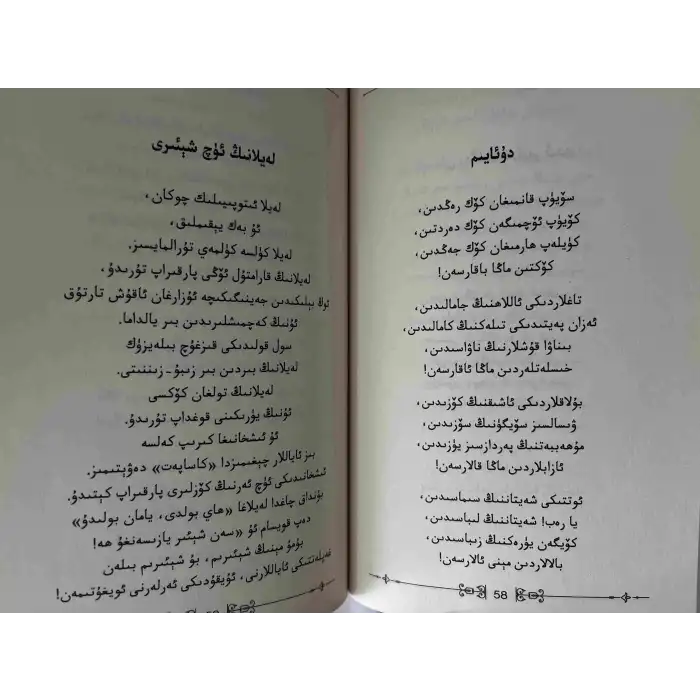 دۇئايىم
سۆيۈپ قانمىغان كۆك رەڭدىن،
كۆيۈپ ئۆچمىگەن كۆك دەردتىن،
كۈيلەپ ھارمىغان كۆك جەڭدىن،
كۆكتىن ماڭا باقارسەن!
تاغلاردىكى ئاللاھنىڭ جامالىدىن،
ئەزان پەيتىدىكى تىلەكنىڭ كامالىدىن،
بىناۋا قۇشلارنىڭ ناۋاسىدىن،
خىسلەتلەردىن ماڭا ئاقارسەن!
بۇلاقلاردىكى ئاشىقنىڭ كۆزىدىن،
ۋىسالسىز سۆيگۈنىڭ سۆزىدىن،
مۇھەببەتنىڭ پەردازسىز يۈزىدىن،
ئازابلاردىن ماڭا قالارسەن!
ئوتتىكى شەيتاننىڭ سىماسىدىن،
يا رەب! شەيتاننىڭ لىباسىدىن،
كۆيگەن يۈرەكنىڭ زىباسىدىن،
بالالاردىن مېنى ئالارسەن!
58
لەيلانىڭ ئۈچ شېئىرى
لەيلا ئىتوپىيىلىك چوكان،
ئۇ بەك يېقىملىق،
لەيلا كۈلسە كۈلمەي تۇرالمايسىز.
لەيلانىڭ قارامتۇل ئۆڭى پارقىراپ تۇرىدۇ،
ئوڭ بېلىكىدىن جەينىگىكىچە ئۇزارغان ئاقۇش تارتۇق
ئۇنىڭ كەچمىشلىرىدىن بىر يالداما.
سول قولىدىكى قىزغۇچ بىلەيزۈك
لەيلانىڭ بىردىن بىر زىبۇ-زىننىتى.
لەيلانىڭ تولغان كۆكسى
ئۇنىڭ يۈرىكىنى قوغداپ تۇرىدۇ.
ئۇ ئىشخانىغا كىرىپ كەلسە
بىز ئاياللار چېغىمىزدا «كاساپەت» دەۋېتىمىز.
ئىشخانىدىكى ئۈچ ئەرنىڭ كۆزلىرى پارقىراپ كېتىدۇ.
بۇنداق چاغدا لەيلاغا «ھاي بولدى، يامان بولىدۇ»
دەپ قويسام ئۇ «سەن شېئىر يازىسەنغۇ ھە!
بۇمۇ مېنىڭ شېئىرىم، بۇ شېئىرىم بىلەن
ئاياللارنى، ئۇيقۇدىكى ئەرلەرنى ئويغۇتىمەن!